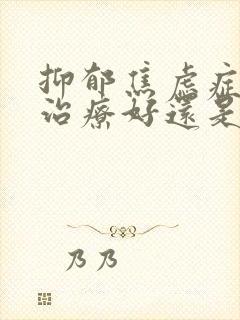 抑郁焦虑症
治療好還是
乃乃